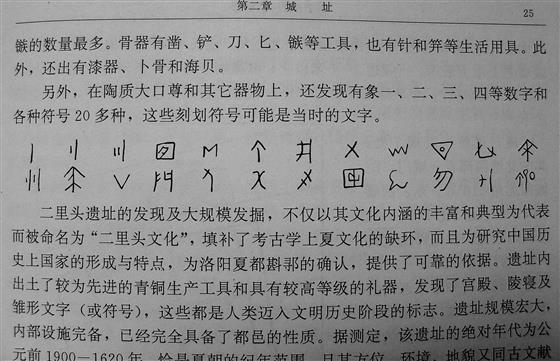 第二章 城 址
25
镞的数量最多。骨器有凿、铲、刀、匕、镞等工具，也有针和笄等生活用具。此
外，还出有漆器、卜骨和海贝。
另外，在陶质大口尊和其它器物上，还发现有象一、二、三、四等数字和
各种符号20多种，这些刻划符号可能是当时的文字。
二里头遗址的发现及大规模发掘，不仅以其文化内涵的丰富和典型为代表
而被命名为“二里头文化”，填补了考古学上夏文化的缺环，而且为研究中国历
史上国家的形成与特点，为洛阳夏都斟鄩的确认，提供了可靠的依据。遗址内
出土了较为先进的青铜生产工具和具有较高等级的礼器，发现了宫殿、陵寝及
雏形文字（或符号），这些都是人类迈入文明历史阶段的标志。遗址规模宏大，
内部设施完备，已经完全具备了都邑的性质。据测定，该遗址的绝对年代为公
元前1900—1620年，恰是夏朝的纪年范围，且其方位、环境、地貌又同古文献